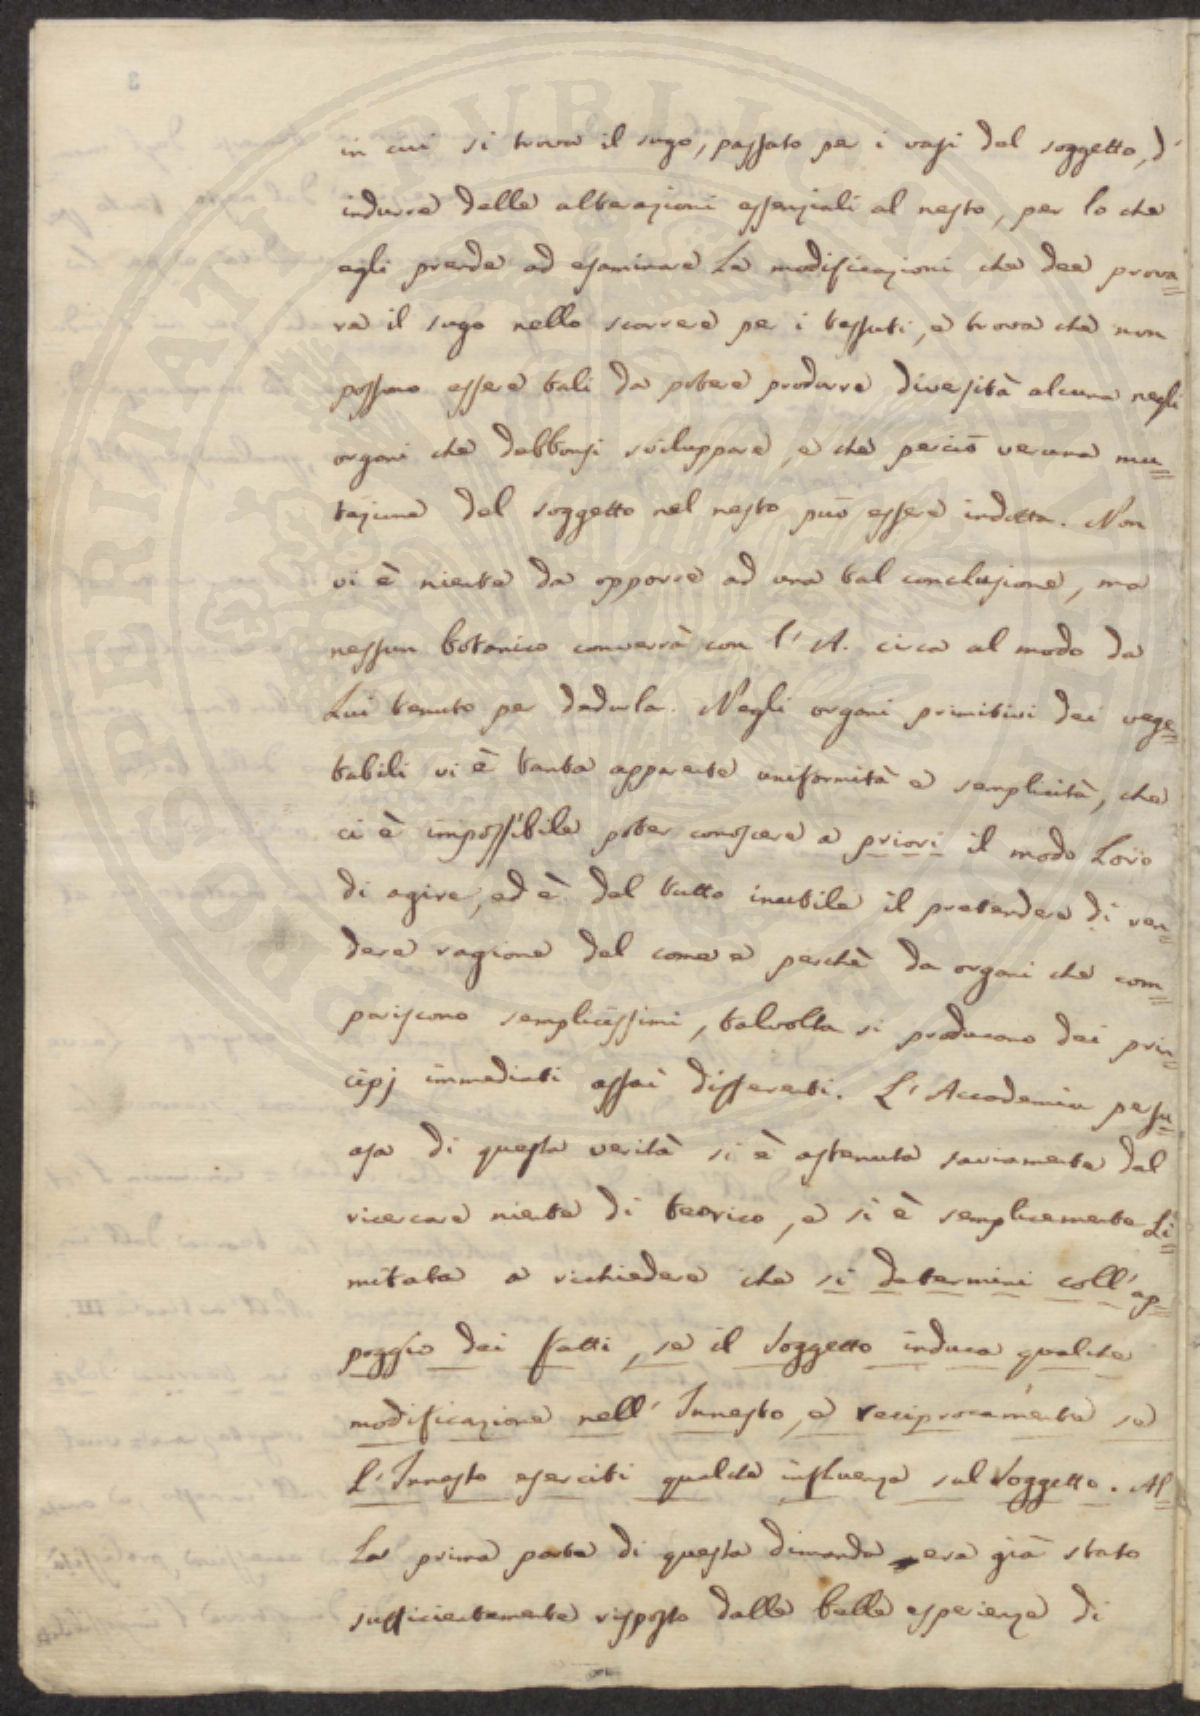 in cui si trova il sugo, passato per i vasi del soggetto, d'
indurre delle alterazioni essenziali al nesto, per lo che
egli prende ad esaminare le modificazioni che dee prova=
re il sugo nello scorrere per i tessuti, e trova che non
possono essere tali da potere produrre diversità alcuna negli
organi che debbonsi sviluppare, e che perciò veruna mu=
tazione del soggetto nel nesto può essere indotta. Non
vi è niente da opporre ad una tal conclusione, ma
nessun botanico converrà con l'A. circa al modo da
Lui tenuto per dedurla. Negli organi primitivi dei vege=
tabili vi è tanta apparente uniformità e semplicità, che
ci è impossibile poter conoscere a priori il modo Loro
di agire, ed è del tutto inutile il pretendere di ren=
dere ragione del come e perchè da organi che com=
pariscono semplicissimi, talvolta si producono dei prin=
cipj immediati assai differenti. L'Accademia persu=
asa di questa verità si è astenuta saviamente dal
ricercare niente di teorico, e si è semplicemente Li=
mitata a richiedere che si determini coll'ap=
poggio dei fatti, se il Soggetto induca qualche
modificazione nell'Innesto, e reciprocamente se
l'Innesto eserciti qualche influenza sul Soggetto. Al=
La prima parte di questa dimanda era già stato
sufficientemente risposto dalle belle esperienze di
POSPERITATI PVBLICAE AVGENDAE
3
III.